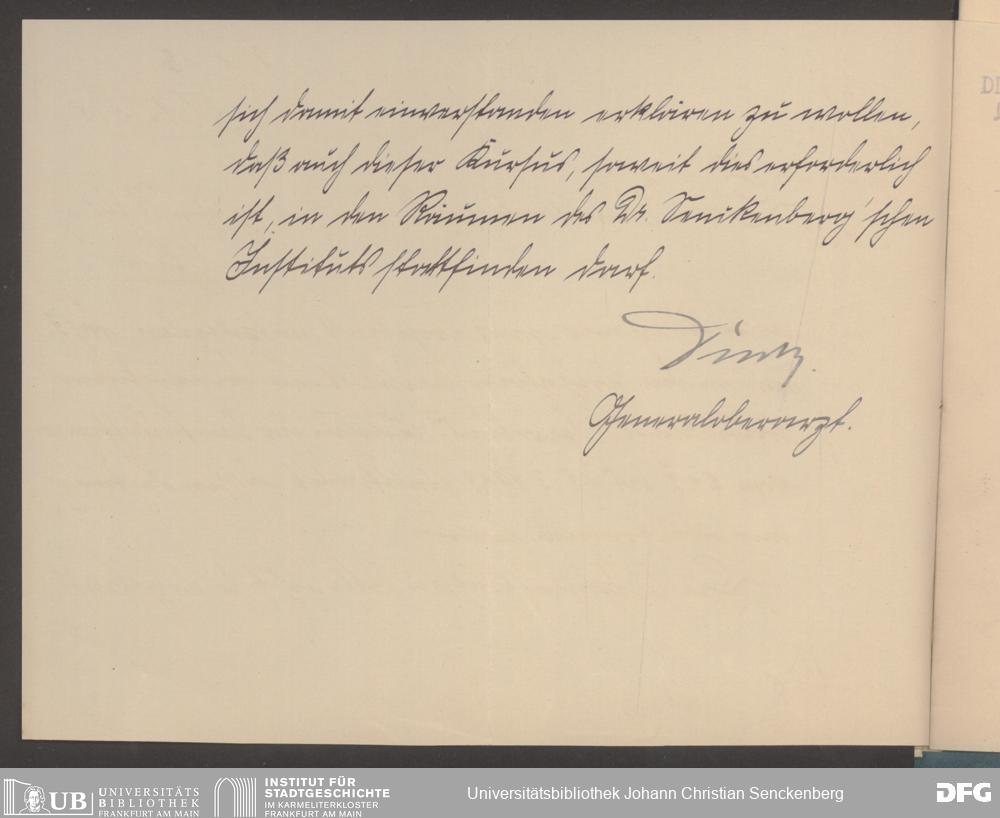 sich damit einverstanden erklären zu wollen,
daß auch dieser Kursus, soweit dies erforderlich
ist, in den Räumen des Dr. Senckenberg'schen
Instituts stattfinden darf.
Generaloberarzt.
UB UNIVERSITÄTS
BIBLIOTHEK
FRANKFURT AM MAIN
INSTITUT FÜR
STADTGESCHICHTE
IM KARMELITERKLOSTER
FRANKFURT AM MAIN
Universitätsbibliothek Johann Christian Senckenberg
DFG